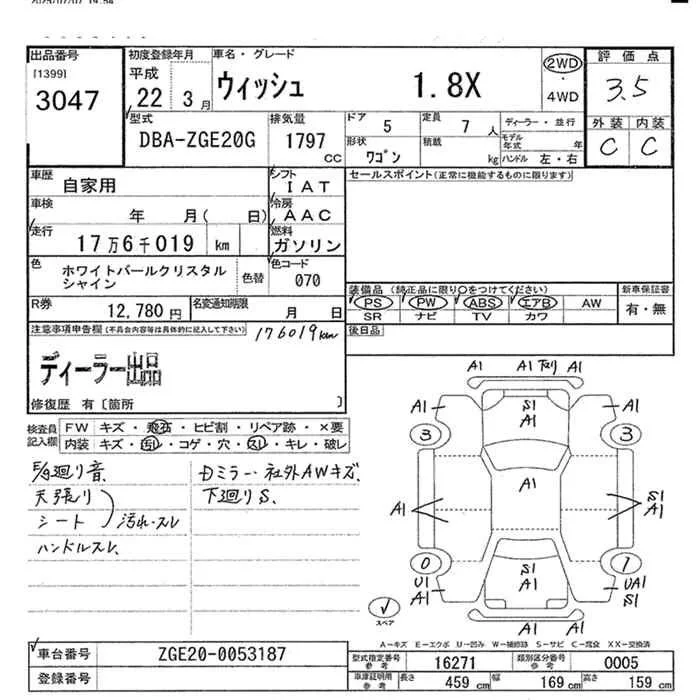 2025/07/07 19:54
出品番号
[1399]
3047
初度登録年月
平成
22 3月
車名・グレード
ウィッシュ 1.8X
2WD
・
4WD
評価点
3.5
外装 内装
C C
型式
DBA-ZGE20G
排気量
1797
CC
ドア
5
定員
7 人
ディーラー・並行
形状
ワゴン
積載
kg
モデル年式 年
ハンドル 左・右
車歴
自家用
シフト
I A T
車検
年 月( 日)
冷房
A A C
走行
17万6千019 km
燃料
ガソリン
色
ホワイトパールクリスタル
シャイン
色替
色コード
070
R券
12,780 円
名変通知期限
月 日
セールスポイント(正常に機能するものに限ります)
装備品 (純正品に限り○をつけてください)
PS PW ABS エアB AW
SR ナビ TV カワ
新車保証書
有・無
後日品
注意事項申告欄(不具合内容等は具体的に記入して下さい)
176019km
ディーラー出品
修復歴 有〔箇所 〕
検査員
記入欄
FW キズ・飛石・ヒビ割・リペア跡・×要
内装 キズ・汚レ・コゲ・穴・スレ・キレ・破レ
E/g廻り音.
天張り
シート
汚れ・スレ
ハンドルスレ.
Dミラー・社外AWキズ.
下廻りS.
A1 A1 下マリ A1
A1 S1 A1 A1
3 3
A1 A1 S1 A1
0 1
U1 A1 S1 A1 UA1 S1
A1 A1
スペア
A-キズ E-エクボ U-凹み W-補修跡 S-サビ C-腐食 XX-交換済
車台番号
ZGE20-0053187
登録番号
型式指定番号
参考
16271
類別区分番号
参考
0005
車庫証明用
参考
長さ 459 cm 幅 169 cm 高さ 159 cm